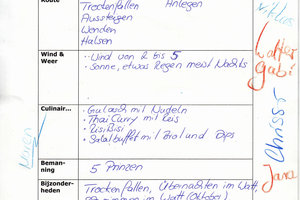 Route
Trockenfallen Anlegen
Aussteigen
Wenden
Halsen
Wind &
Weer
- Wind von 2 bis 5
- Sonne, etwas Regen meist Nachts
Culinair...
- Gulasch mit Nudeln
- Thai Curry mit Reis
- Risibisi
- Salatbuffet mit Brot und Dips
Beman-
ning
5 Prinzen
Bijzonder-
heden
Trockenfallen, Übernachten im Watt,
im Watt (Oktober)
Walter
Gabi
Chrissi
Jara